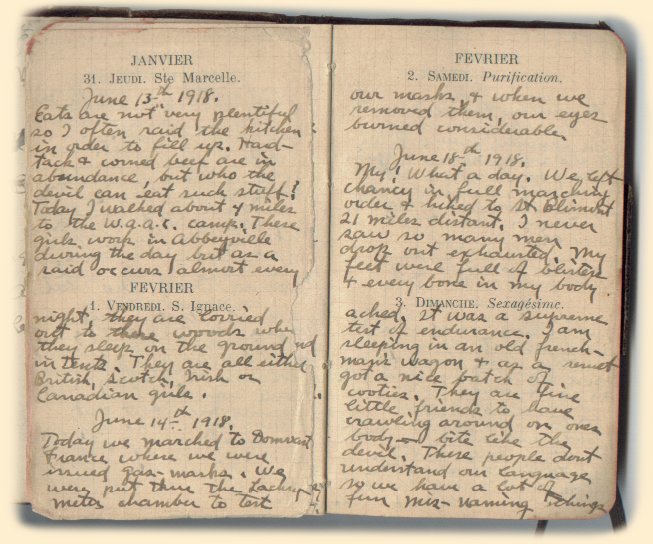 JANVIER
31. JEUDI. Ste Marcelle.
June 13th 1918.
Eats are not very plentiful
so I often raid the kitchen
in order to fill up. Hard-
tack & corned beef are in
abundance, but who the
devil can eat such stuff?
Today I walked about 4 miles
to the W.a.a.c. camp. These
girls work in Abbeyville
during the day but as a
raid occurs almost every
FEVRIER
1. VENDREDI. S. Ignace.
night, they are lorried
out to these woods where
they sleep on the ground
in tents. They are all either
British, Scotch, Irish or
Canadian girls.
June 14th 1918.
Today we marched to Domvast
France where we were
issued gas-masks. We
were put thru the
meter chamber to test
FEVRIER
2. SAMEDI. Purification.
our masks, & when we
removed them, our eyes
burned considerable.
June 18th 1918.
My! What a day. We left
chancy in full marching
order & hiked to St Blimont
21 miles distant. I never
saw so many men
drop out exhausted. My
feet were full of blisters
& every bone in my body
3. DIMANCHE. Sexagésime.
ached. It was a supreme
test of endurance. I am
sleeping in an old french-
man's wagon & as a result
got a nice batch of
cooties. They are fine
little friends to have
crawling around on ones
body - bite like the
devil. These people dont
understand our language
so we have a lot of
fun mis-naming things